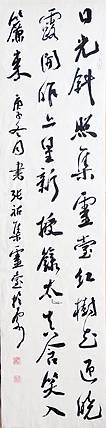 日光斜照集靈臺紅樹花迎曉
露開昨夜上皇新授籙太真含笑入
簾來 庚子冬月書張祜集靈臺